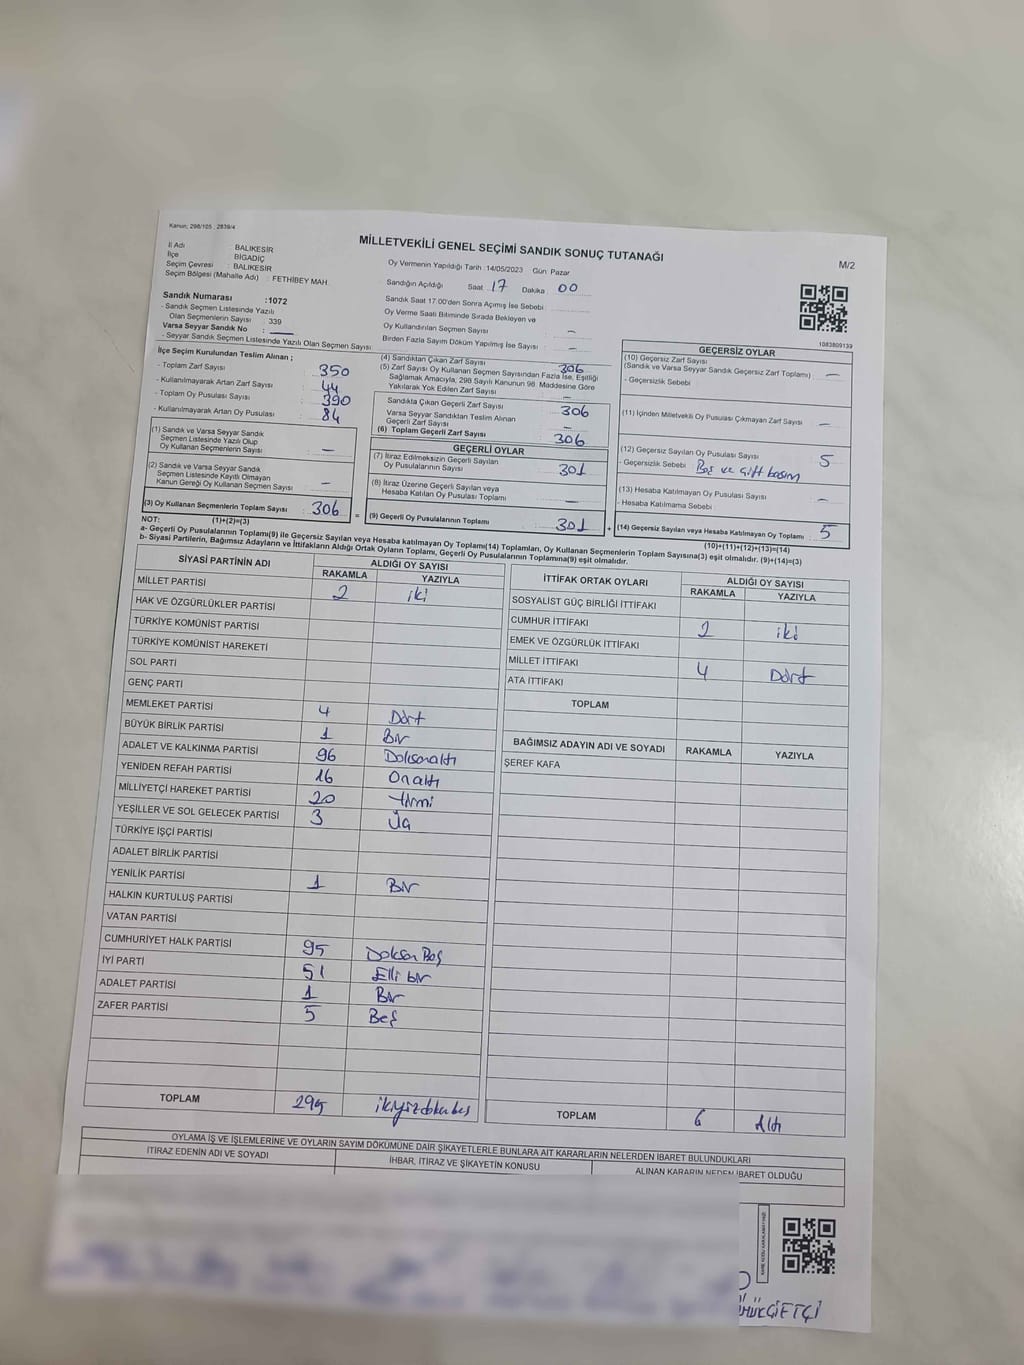 Kanun; 298/105 , 2839/4
MİLLETVEKİLİ GENEL SEÇİMİ SANDIK SONUÇ TUTANAĞI
M/2
İl Adı : BALIKESİR
İlçe : BİGADİÇ
Seçim Çevresi : BALIKESİR
Seçim Bölgesi (Mahalle Adı) : FETHİBEY MAH.
Oy Vermenin Yapıldığı Tarih :14/05/2023 Gün: Pazar
Sandığın Açıldığı Saat :17 Dakika :00
Sandık Saat 17:00'den Sonra Açılmış İse Sebebi :
Oy Verme Saati Bitiminde Sırada Bekleyen ve
Oy Kullandırılan Seçmen Sayısı : –
Birden Fazla Sayım Döküm Yapılmış İse Sayısı : –
Sandık Numarası :1072
- Sandık Seçmen Listesinde Yazılı
Olan Seçmenlerin Sayısı : 339
Varsa Seyyar Sandık No :
- Seyyar Sandık Seçmen Listesinde Yazılı Olan Seçmen Sayısı:
1083809139
İlçe Seçim Kurulundan Teslim Alınan ;
- Toplam Zarf Sayısı : 350
- Kullanılmayarak Artan Zarf Sayısı : 44
- Toplam Oy Pusulası Sayısı : 390
- Kullanılmayarak Artan Oy Pusulası : 84
(1) Sandık ve Varsa Seyyar Sandık
Seçmen Listesinde Yazılı Olup
Oy Kullanan Seçmenlerin Sayısı : –
(2) Sandık ve Varsa Seyyar Sandık
Seçmen Listesinde Kayıtlı Olmayan
Kanun Gereği Oy Kullanan Seçmen Sayısı : –
(3) Oy Kullanan Seçmenlerin Toplam Sayısı : 306
(1)+(2)=(3)
(4) Sandıktan Çıkan Zarf Sayısı : 306
(5) Zarf Sayısı Oy Kullanan Seçmen Sayısından Fazla İse, Eşitliği
Sağlamak Amacıyla, 298 Sayılı Kanunun 98. Maddesine Göre
Yakılarak Yok Edilen Zarf Sayısı : –
Sandıkta Çıkan Geçerli Zarf Sayısı : 306
Varsa Seyyar Sandıktan Teslim Alınan
Geçerli Zarf Sayısı : –
(6) Toplam Geçerli Zarf Sayısı : 306
GEÇERLİ OYLAR
(7) İtiraz Edilmeksizin Geçerli Sayılan
Oy Pusulalarının Sayısı : 301
(8) İtiraz Üzerine Geçerli Sayılan veya
Hesaba Katılan Oy Pusulası Toplamı : –
= (9) Geçerli Oy Pusulalarının Toplamı : 301 +
GEÇERSİZ OYLAR
(10) Geçersiz Zarf Sayısı
(Sandık ve Varsa Seyyar Sandık Geçersiz Zarf Toplamı) : –
- Geçersizlik Sebebi :
(11) İçinden Milletvekili Oy Pusulası Çıkmayan Zarf Sayısı : –
(12) Geçersiz Sayılan Oy Pusulası Sayısı : 5
- Geçersizlik Sebebi : Boş ve Çift basım
(13) Hesaba Katılmayan Oy Pusulası Sayısı : –
- Hesaba Katılmama Sebebi :
(14) Geçersiz Sayılan veya Hesaba Katılmayan Oy Toplamı : 5
(10)+(11)+(12)+(13)=(14)
NOT:
a- Geçerli Oy Pusulalarının Toplamı(9) ile Geçersiz Sayılan veya Hesaba katılmayan Oy Toplamı(14) Toplamları, Oy Kullanan Seçmenlerin Toplam Sayısına(3) eşit olmalıdır. (9)+(14)=(3)
b- Siyasi Partilerin, Bağımsız Adayların ve İttifakların Aldığı Ortak Oyların Toplamı, Geçerli Oy Pusulalarının Toplamına(9) eşit olmalıdır.
SİYASİ PARTİNİN ADI ALDIĞI OY SAYISI
RAKAMLA YAZIYLA
MİLLET PARTİSİ 2 iki
HAK VE ÖZGÜRLÜKLER PARTİSİ
TÜRKİYE KOMÜNİST PARTİSİ
TÜRKİYE KOMÜNİST HAREKETİ
SOL PARTİ
GENÇ PARTİ
MEMLEKET PARTİSİ 4 Dört
BÜYÜK BİRLİK PARTİSİ 1 Bir
ADALET VE KALKINMA PARTİSİ 96 Doksanaltı
YENİDEN REFAH PARTİSİ 16 Onaltı
MİLLİYETÇİ HAREKET PARTİSİ 20 Yirmi
YEŞİLLER VE SOL GELECEK PARTİSİ 3 Üç
TÜRKİYE İŞÇİ PARTİSİ
ADALET BİRLİK PARTİSİ
YENİLİK PARTİSİ 1 Bir
HALKIN KURTULUŞ PARTİSİ
VATAN PARTİSİ
CUMHURİYET HALK PARTİSİ 95 Doksan Beş
İYİ PARTİ 51 Elli bir
ADALET PARTİSİ 1 Bir
ZAFER PARTİSİ 5 Beş
TOPLAM 295 ikiyüzdoksanbeş
İTTİFAK ORTAK OYLARI ALDIĞI OY SAYISI
RAKAMLA YAZIYLA
SOSYALİST GÜÇ BİRLİĞİ İTTİFAKI
CUMHUR İTTİFAKI 2 iki
EMEK VE ÖZGÜRLÜK İTTİFAKI
MİLLET İTTİFAKI 4 Dört
ATA İTTİFAKI
TOPLAM
BAĞIMSIZ ADAYIN ADI VE SOYADI RAKAMLA YAZIYLA
ŞEREF KAFA
TOPLAM 6 Altı
OYLAMA İŞ VE İŞLEMLERİNE VE OYLARIN SAYIM DÖKÜMÜNE DAİR ŞİKAYETLERLE BUNLARA AİT KARARLARIN NELERDEN İBARET BULUNDUKLARI
İTİRAZ EDENİN ADI VE SOYADI İHBAR, İTİRAZ VE ŞİKAYETİN KONUSU ALINAN KARARIN NEDEN İBARET OLDUĞU